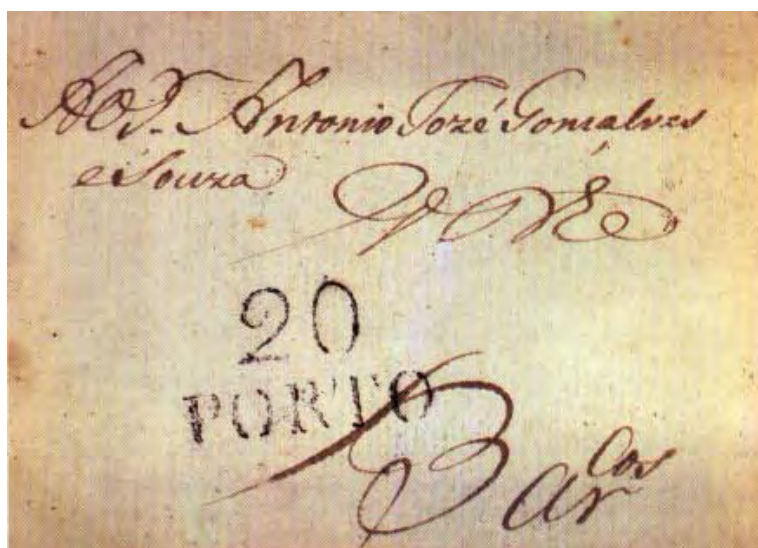 Antonio Jozé Gonsalves
e Souza
20
PORTO
Barcos